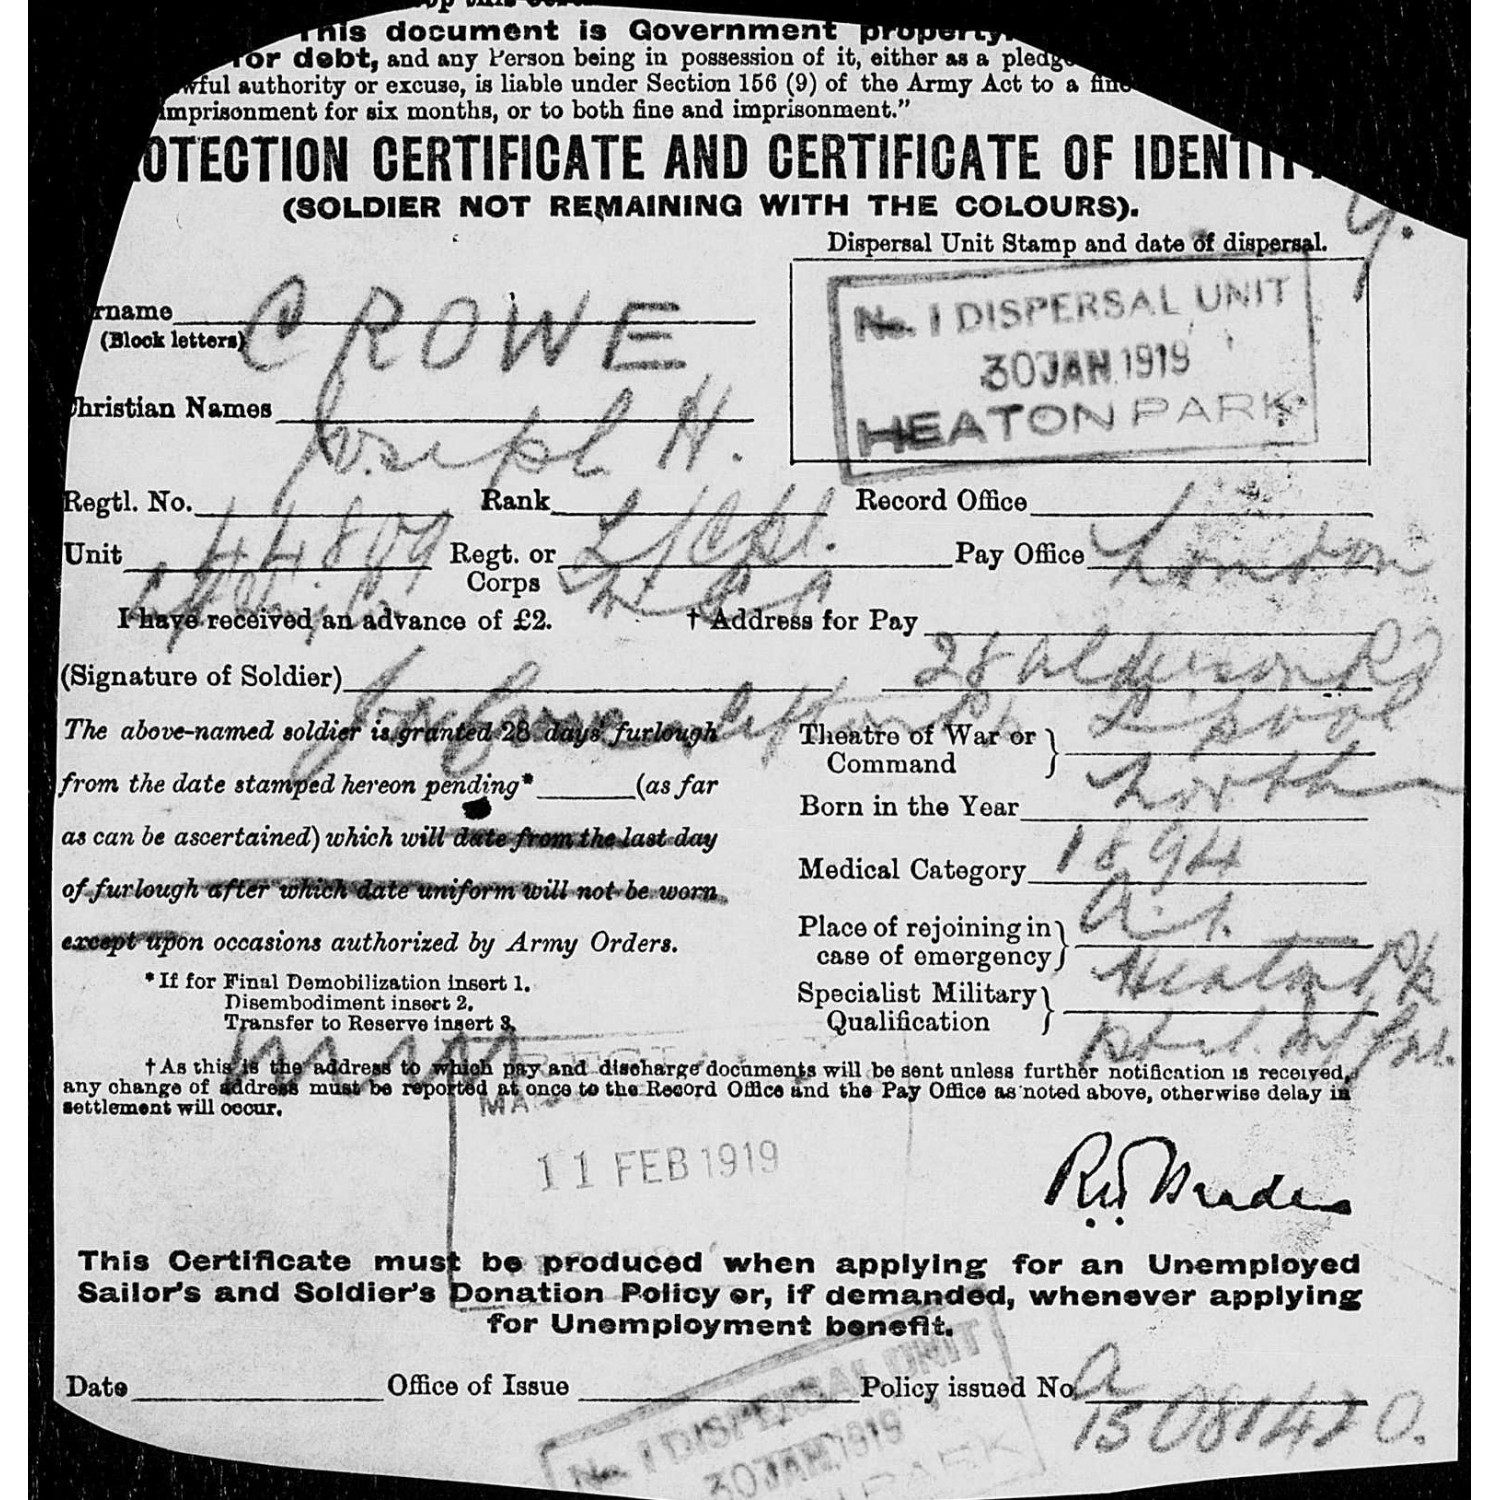 This document is Government property.
for debt, and any Person being in possession of it, either as a pledge
wful authority or excuse, is liable under Section 156 (9) of the Army Act to a fine
imprisonment for six months, or to both fine and imprisonment."
OTECTION CERTIFICATE AND CERTIFICATE OF IDENTIT
(SOLDIER NOT REMAINING WITH THE COLOURS).
Dispersal Unit Stamp and date of dispersal.
No. 1 DISPERSAL UNIT
30 JAN. 1919
HEATON PARK
rname CROWE
(Block letters)
Christian Names Joseph H.
Regtl. No. 44809 Rank L/Cpl. Record Office London
Unit Regt. or Corps M G C Pay Office
I have received an advance of £2. † Address for Pay 28 Alderson Rd
(Signature of Soldier) Joe Crowe L'pool
The above-named soldier is granted 28 days' furlough
from the date stamped hereon pending* (as far
as can be ascertained) which will date from the last day
of furlough after which date uniform will not be worn
except upon occasions authorized by Army Orders.
*If for Final Demobilization insert 1.
Disembodiment insert 2.
Transfer to Reserve insert 3.
Theatre of War or Command Northn
Born in the Year 1894
Medical Category A.1.
Place of rejoining in case of emergency Heaton Pk
Specialist Military Qualification
† As this is the address to which pay and discharge documents will be sent unless further notification is received,
any change of address must be reported at once to the Record Office and the Pay Office as noted above, otherwise delay in
settlement will occur.
11 FEB 1919
This Certificate must be produced when applying for an Unemployed
Sailor's and Soldier's Donation Policy or, if demanded, whenever applying
for Unemployment benefit.
Date Office of Issue Policy issued No. A
15081420.
No. 1 DISPERSAL UNIT
30 JAN. 1919
PARK